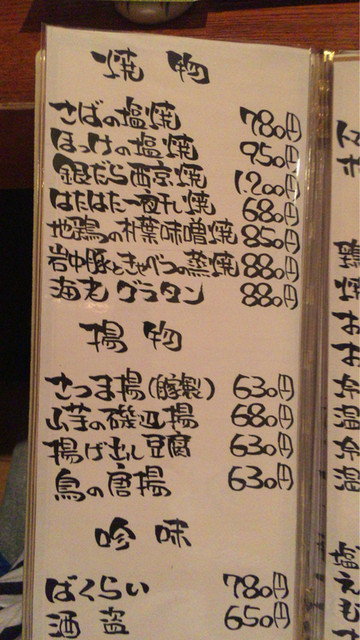 焼物
さばの塩焼 780円
ほっけの塩焼 950円
銀だら西京焼 1.200円
はたはた一夜干し焼 680円
地鶏の朴葉味噌焼 850円
岩中豚ときゃべつの蒸焼 880円
海老グラタン 880円
揚物
さつま揚(自家製) 630円
山芋の磯辺揚 680円
揚げ出し豆腐 630円
鳥の唐揚 630円
珍味
ばくらい 780円
酒盗 650円